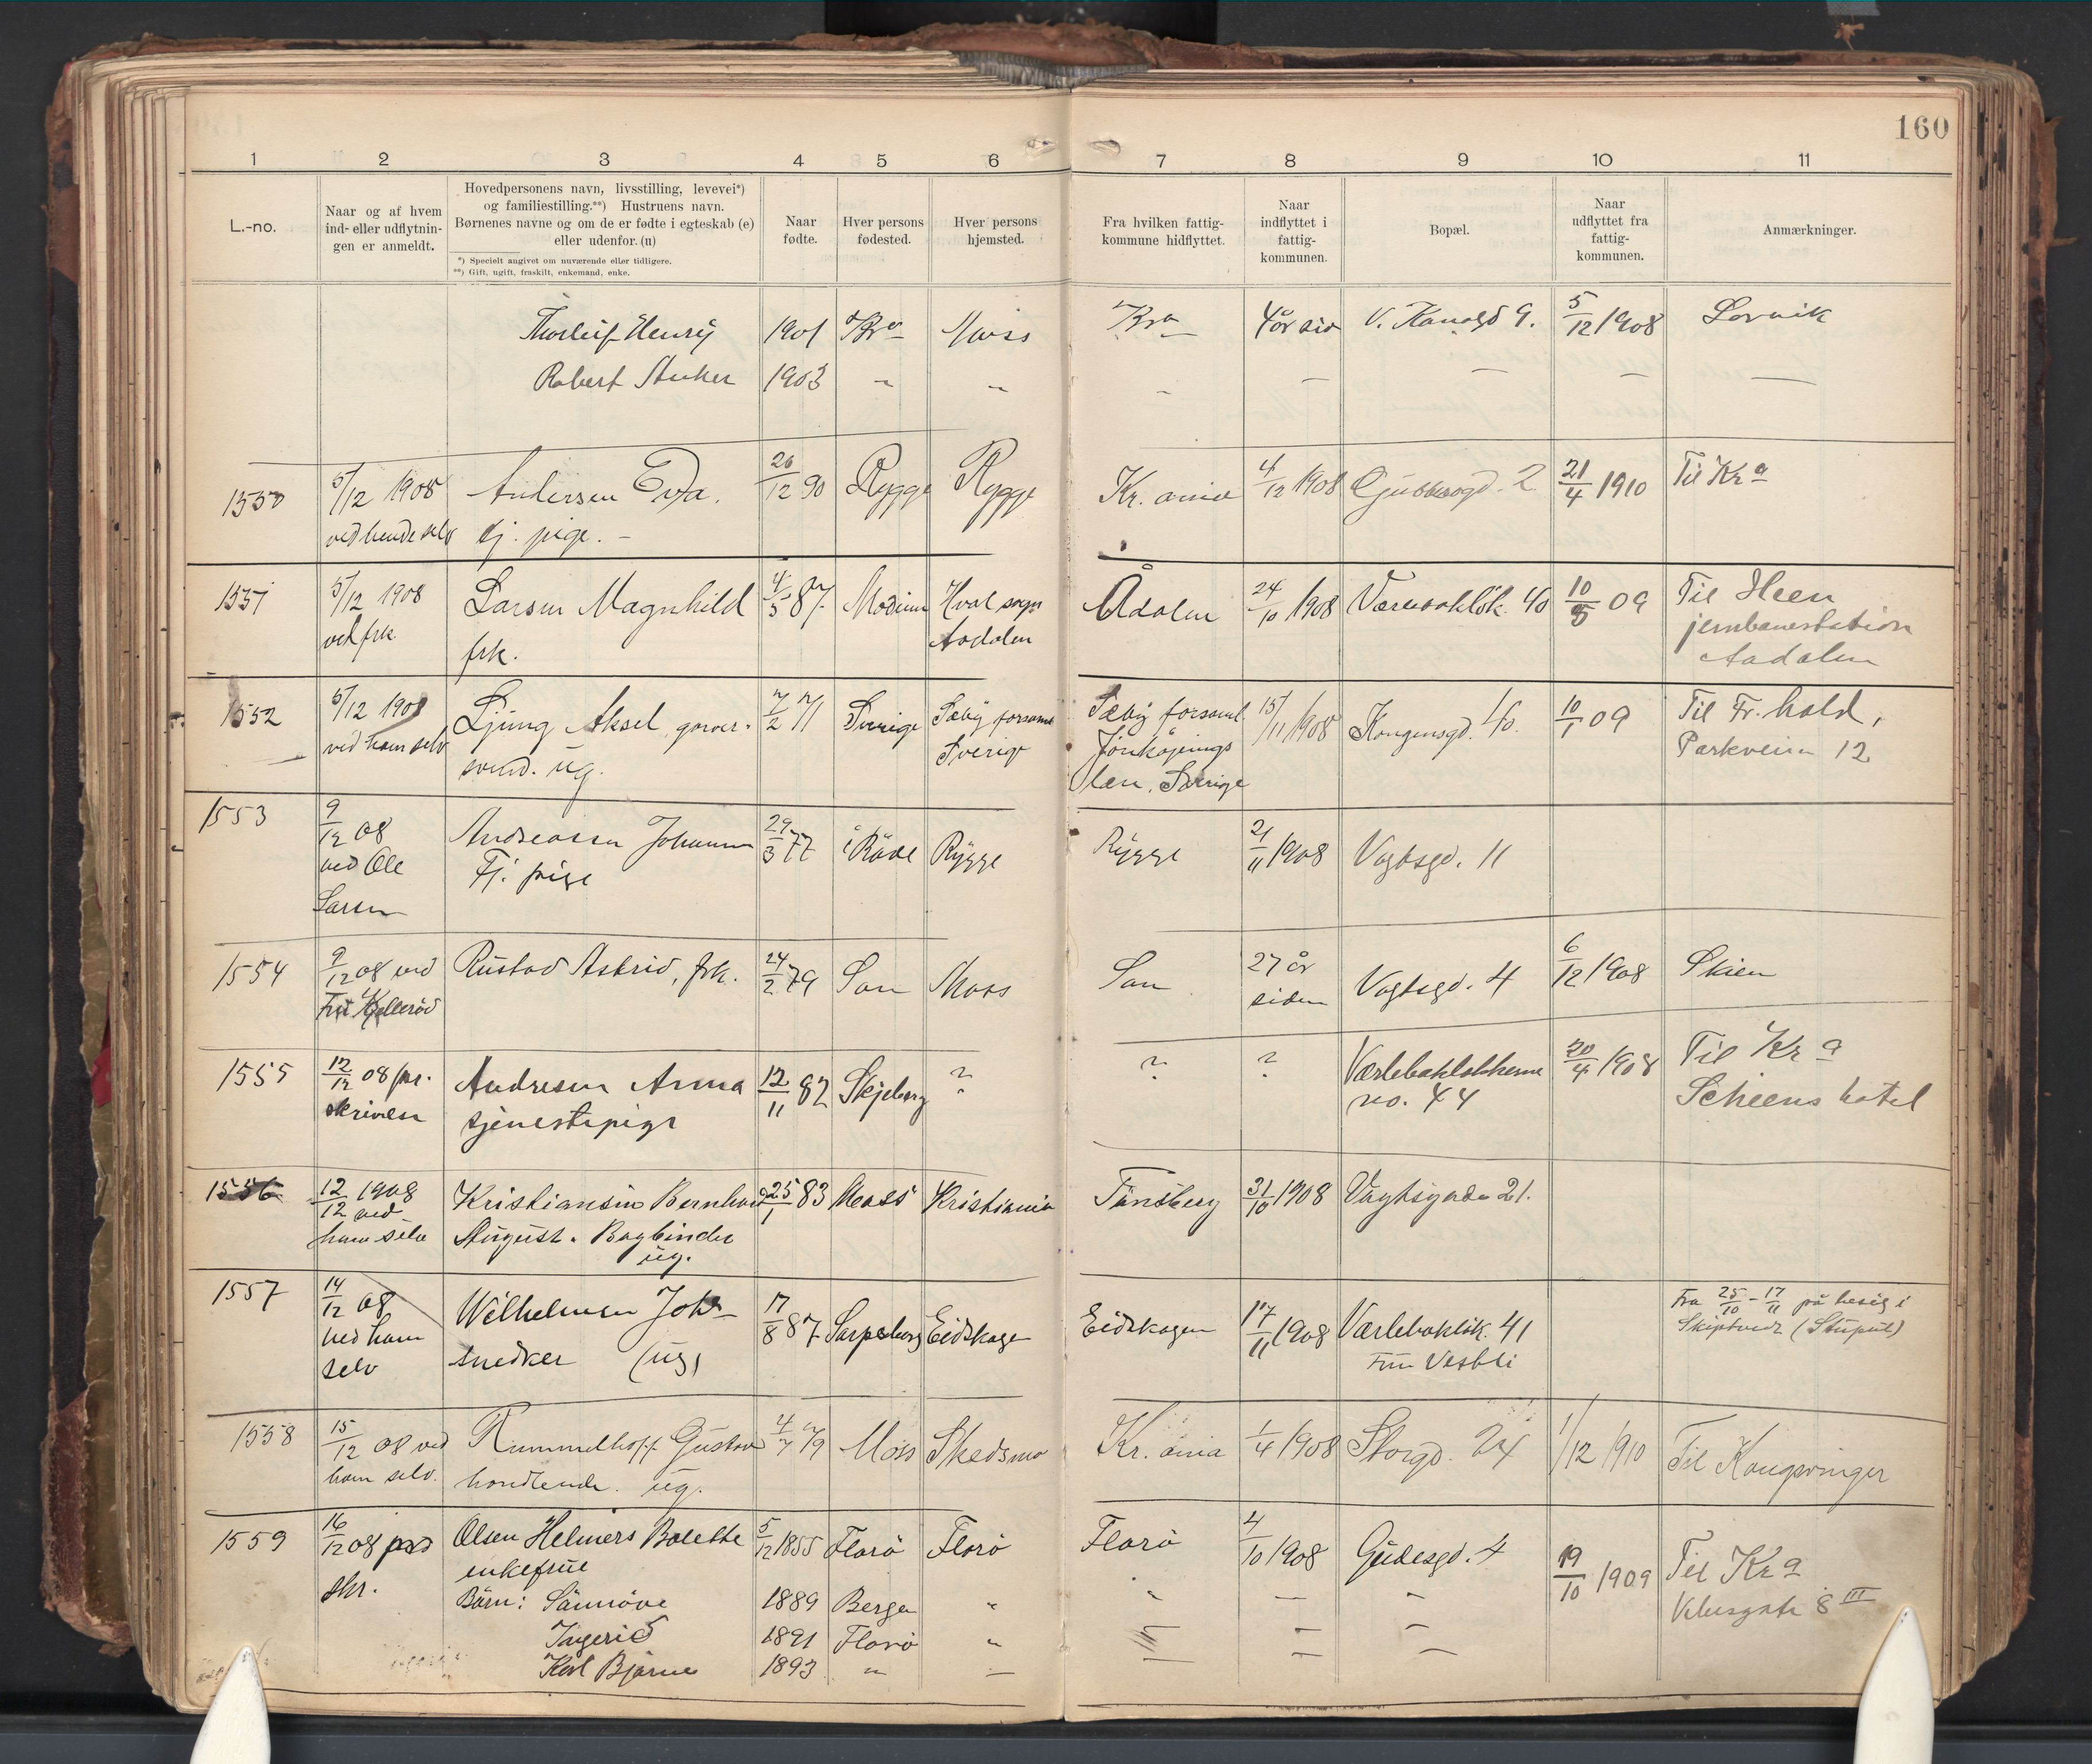 160
1 2 3 4 5 6 7 8 9 10 11
L.-no.
Naar og af hvem
ind- eller udflytnin-
gen er anmeldt.
Hovedpersonens navn, livsstilling, levevei*)
og familiestilling.**) Hustruens navn.
Børnenes navne og om de er fødte i egteskab (e)
eller udenfor. (u)
*) Specielt angivet om nuværende eller tidligere.
**) Gift, ugift, fraskilt, enkemand, enke.
Naar
fødte.
Hver persons
fødested.
Hver persons
hjemsted.
Fra hvilken fattig-
kommune hidflyttet.
Naar
indflyttet i
fattig-
kommunen.
Bopæl.
Naar
udflyttet fra
fattig-
kommunen.
Anmærkninger.
Thorleif Henry 1901 Kra Moss Kra 4 år sid V. Kanalgd 9. 5/12 1908 Lervik
Robert Anker 1903 " " – – – – –
1550 5/12 1908 Andersen Eva. 26/12 90 Rygge Rygge Kr.ania 4/12 1908 2 21/4 1910 Til Kra
ved hende selv tj. pige. –
1551 5/12 1908 Larsen Magnhild 4/5 87. Modum Hval sogn Ådalen 24/10 1908 40 10/5 09 Til Heen
ved frk frk. Aadalen jernbanestation
Aadalen
1552 5/12 1908 Ljung Aksel, garver- 7/2 71 Sverige Sæby forsaml Sæby forsaml. 15/11 1908 Kongensgd. 40. 10/1 09 Til Fr.hald,
ved ham selv svend. ug. Sverige Jönköpings Parkveien 12
län, Sverige
1553 9/12 08 Andreassen Johanne 29/3 77 i Råde Rygge Rygge 21/11 1908 Vogtsgd. 11
ved Ole Tj. pige
Larsen
1554 9/12 08 ved Rustad Astrid, frk. 24/2 79 Son Moss Son 27 år Vogtsgd. 4 6/12 1908 Skien
Fru Kjellerød siden
1555 12/12 08 pr. Andresen Anna 12/11 82 Skjeberg ? ? ? Værlebakløkkerne 20/4 1908 Til Kra
skrivelse tjenestepige no. 44 Scheens hotel
1556 12/12 1908 Kristiansen Bernhard 25/1 83 Moss Kristiania Tønsberg 31/10 1908 Vogtsgade 21.
ved August. Bogbinder
ham selv ug.
1557 14/12 08 Wilhelmsen Joh. 17/8 87 Sarpsborg Eidskogen Eidskogen 17/11 1908 Værlebakløk. 41 Fra 25/10 – 17/11 på besøg i
ved ham snedker (ug) Fru Vestli Skiptvedt
selv
1558 15/12 08 ved Rummelhoff Gustav 4/7 79 Moss Skedsmo Kr.ania 1/4 1908 Storgd. 24 1/12 1910 Til Kongsvinger
ham selv. handlende. ug.
1559 16/12 08 pr Olsen Helmers Bolette 5/12 1855 Florø Florø Florø 4/10 1908 Gudesgd. 4 19/10 1909 Til Kra
skr. enkefrue 8 III
Børn: Sunnøve 1889 Bergen " " – "
Ingerid 1891 Florø " – –
Karl Bjarne 1893 " – – –